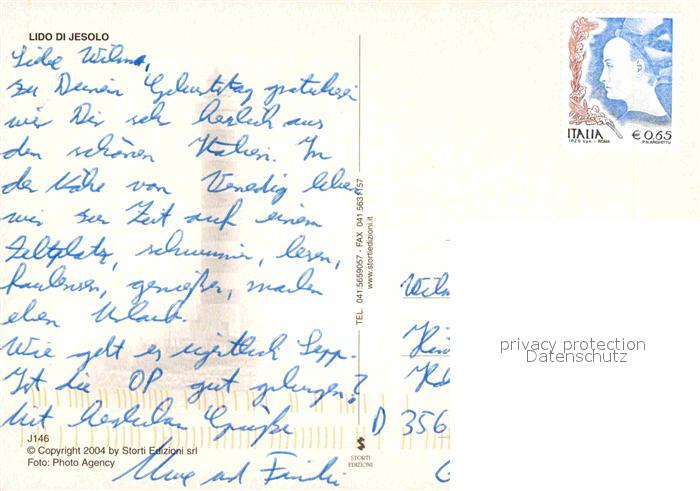 LIDO DI JESOLO
Liebe Wilma,
zu Deinem Geburtstag gratulieren
wir Dir sehr herzlich aus
dem schönen Italien. In
der Nähe von Venedig leben
wir zur Zeit auf einem
Zeltplatz, schwimmen, lesen,
faulenzen, genießen, machen
eben Urlaub.
Wie geht es eigentlich Sepp.
Ist die OP gut gelungen?
Mit herzlichen Grüßen
Uwe und Familie
J146
© Copyright 2004 by Storti Edizioni srl
Foto: Photo Agency
TEL. 041.5659057 - FAX 041.5631157
www.stortiedizioni.it
S
STORTI
EDIZIONI
ITALIA
€ 0,65
I.P.Z.S. S.p.A. - ROMA
Wilm
D 356
privacy protection
Datenschutz